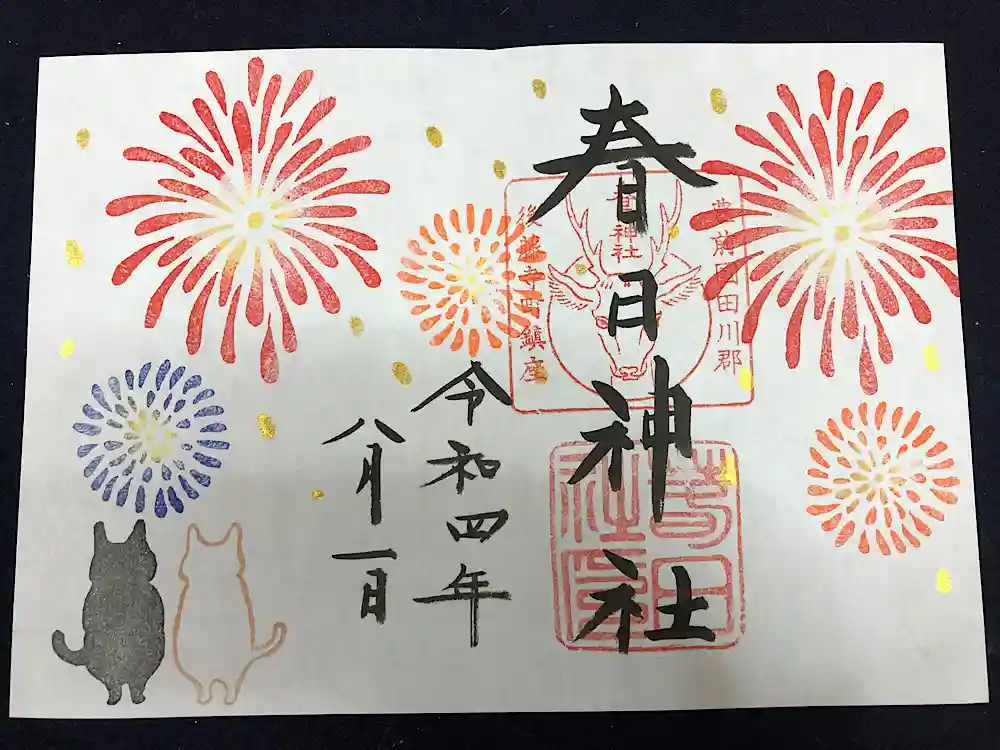 春日神社
令和四年
八月一日
豊前国田川郡
春日神社
後藤寺町鎮座
春日
社印